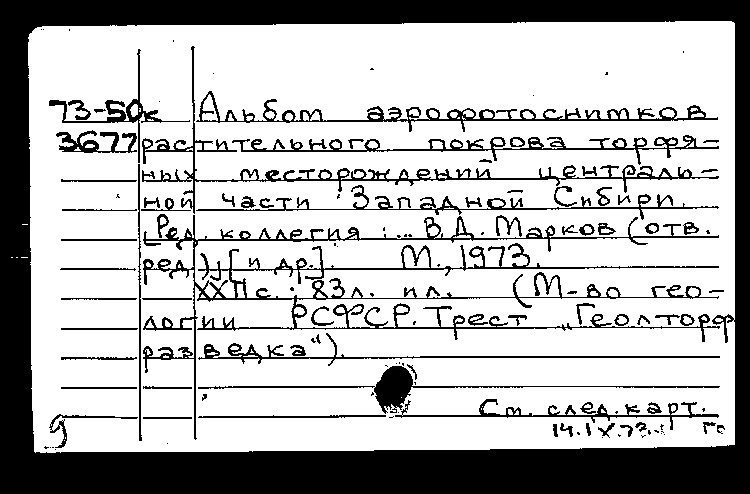 73-50к Альбом аэрофотоснитков
3677 растительного покрова торфя-
ных месторождений централь-
ной части Западной Сибири.
[Ред. коллегия: ... В.Д. Марков (отв.
ред.), [и др.]. М., 1973.
XXII с.; 83л. ил. (М-во гео-
логии РСФСР. Трест „Геолторф
разведка").
См. след. карт.
9 14.IX.73. Гс